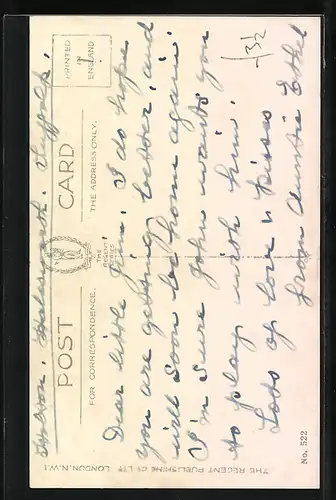 POST CARD
FOR CORRESPONDENCE.
THE ADDRESS ONLY.
THE REGENT SERIES
PRINTED
IN
ENGLAND
Dear little Jim. I do hope
you are getting better, and
will soon be home again.
I'm sure John wants you
to play with him.
Lots of love & kisses
from Auntie Ethel
THE REGENT PUBLISHING CO LTD LONDON, N.W.1
No. 522